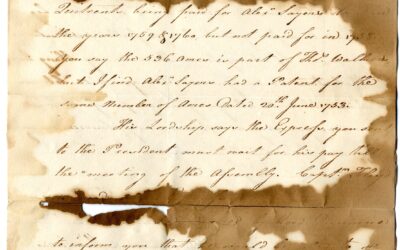 Quitrents, being paid for Alexr. Sayers
the years 1759 & 1760 but not paid for in 1758.
you say the 536 Acres is part of Thos. Walk
but I find Alexr. Sayers had a Patent for the
same Number of Acres Dated 20th. June 1753.
His Lordship says the Express, you sent
to the President must wait for his pay till
the meeting of the Assembly. Capt.
to inform you that he would